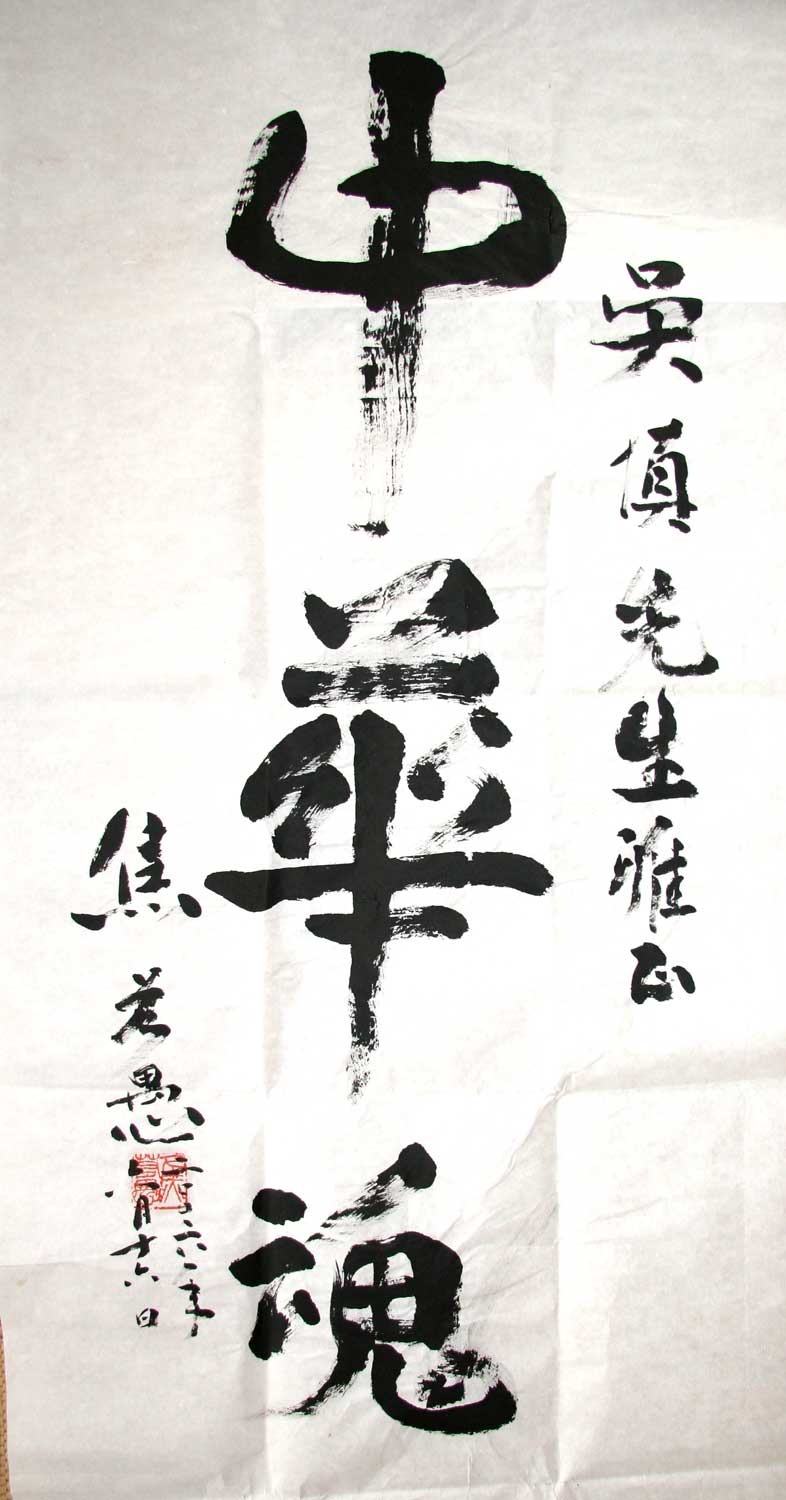 吳慎先生雅正
中華魂
焦若愚
六月十六日